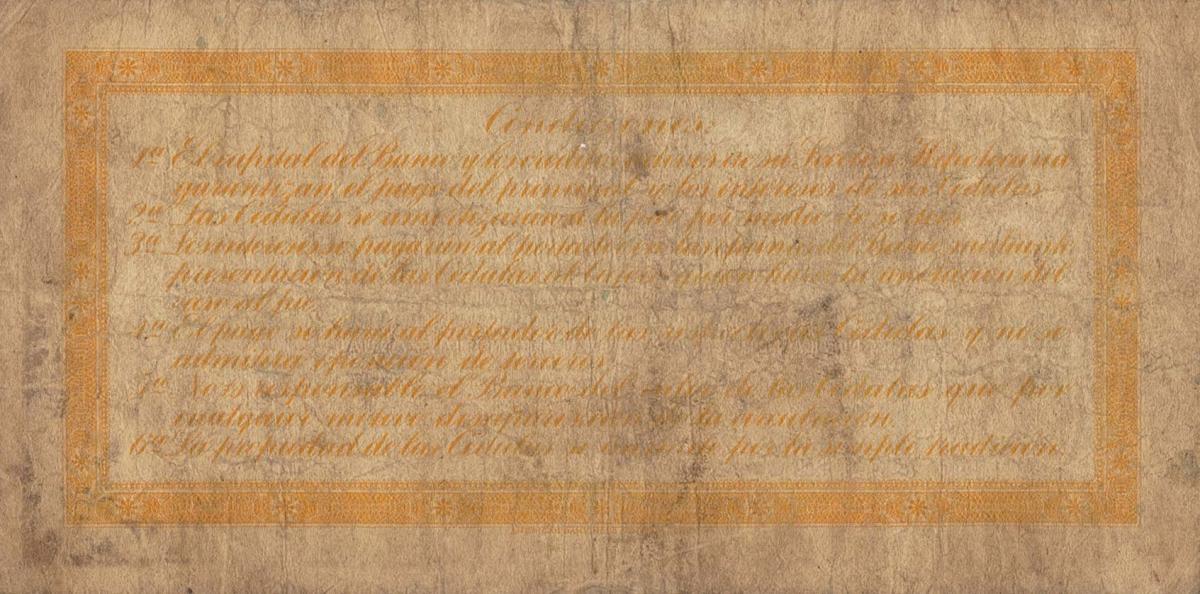 Condiciones:
1ª El capital del Banco y los créditos activos de su Sección Hipotecaria
garantizan el pago del principal y los intereses de sus Cédulas
2ª Las Cédulas se amortizarán a la par por medio de sorteos
3ª Los intereses se pagarán al portador en las oficinas del Banco mediante
presentación de las Cédulas
4ª El pago se hará al portador de las respectivas Cédulas y no se
admitirá oposición de terceros
5ª No es responsable el Banco del de las Cédulas que por
cualquier motivo desapareciesen de la circulación
6ª La propiedad de las Cédulas se por la simple tradición.